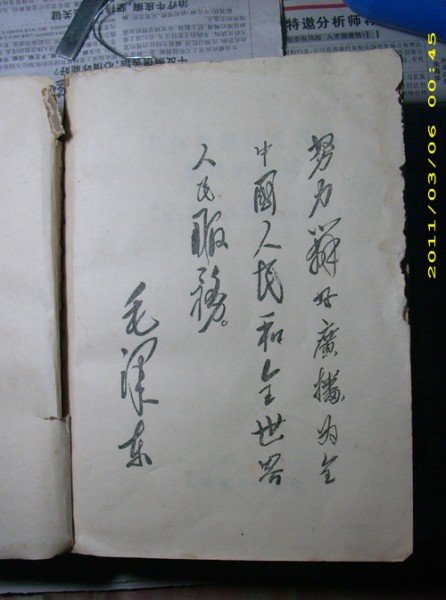 努力辦好廣播为全
中國人民和全世界
人民服務。
毛澤东
2011/03/06 00:45
特邀分析师